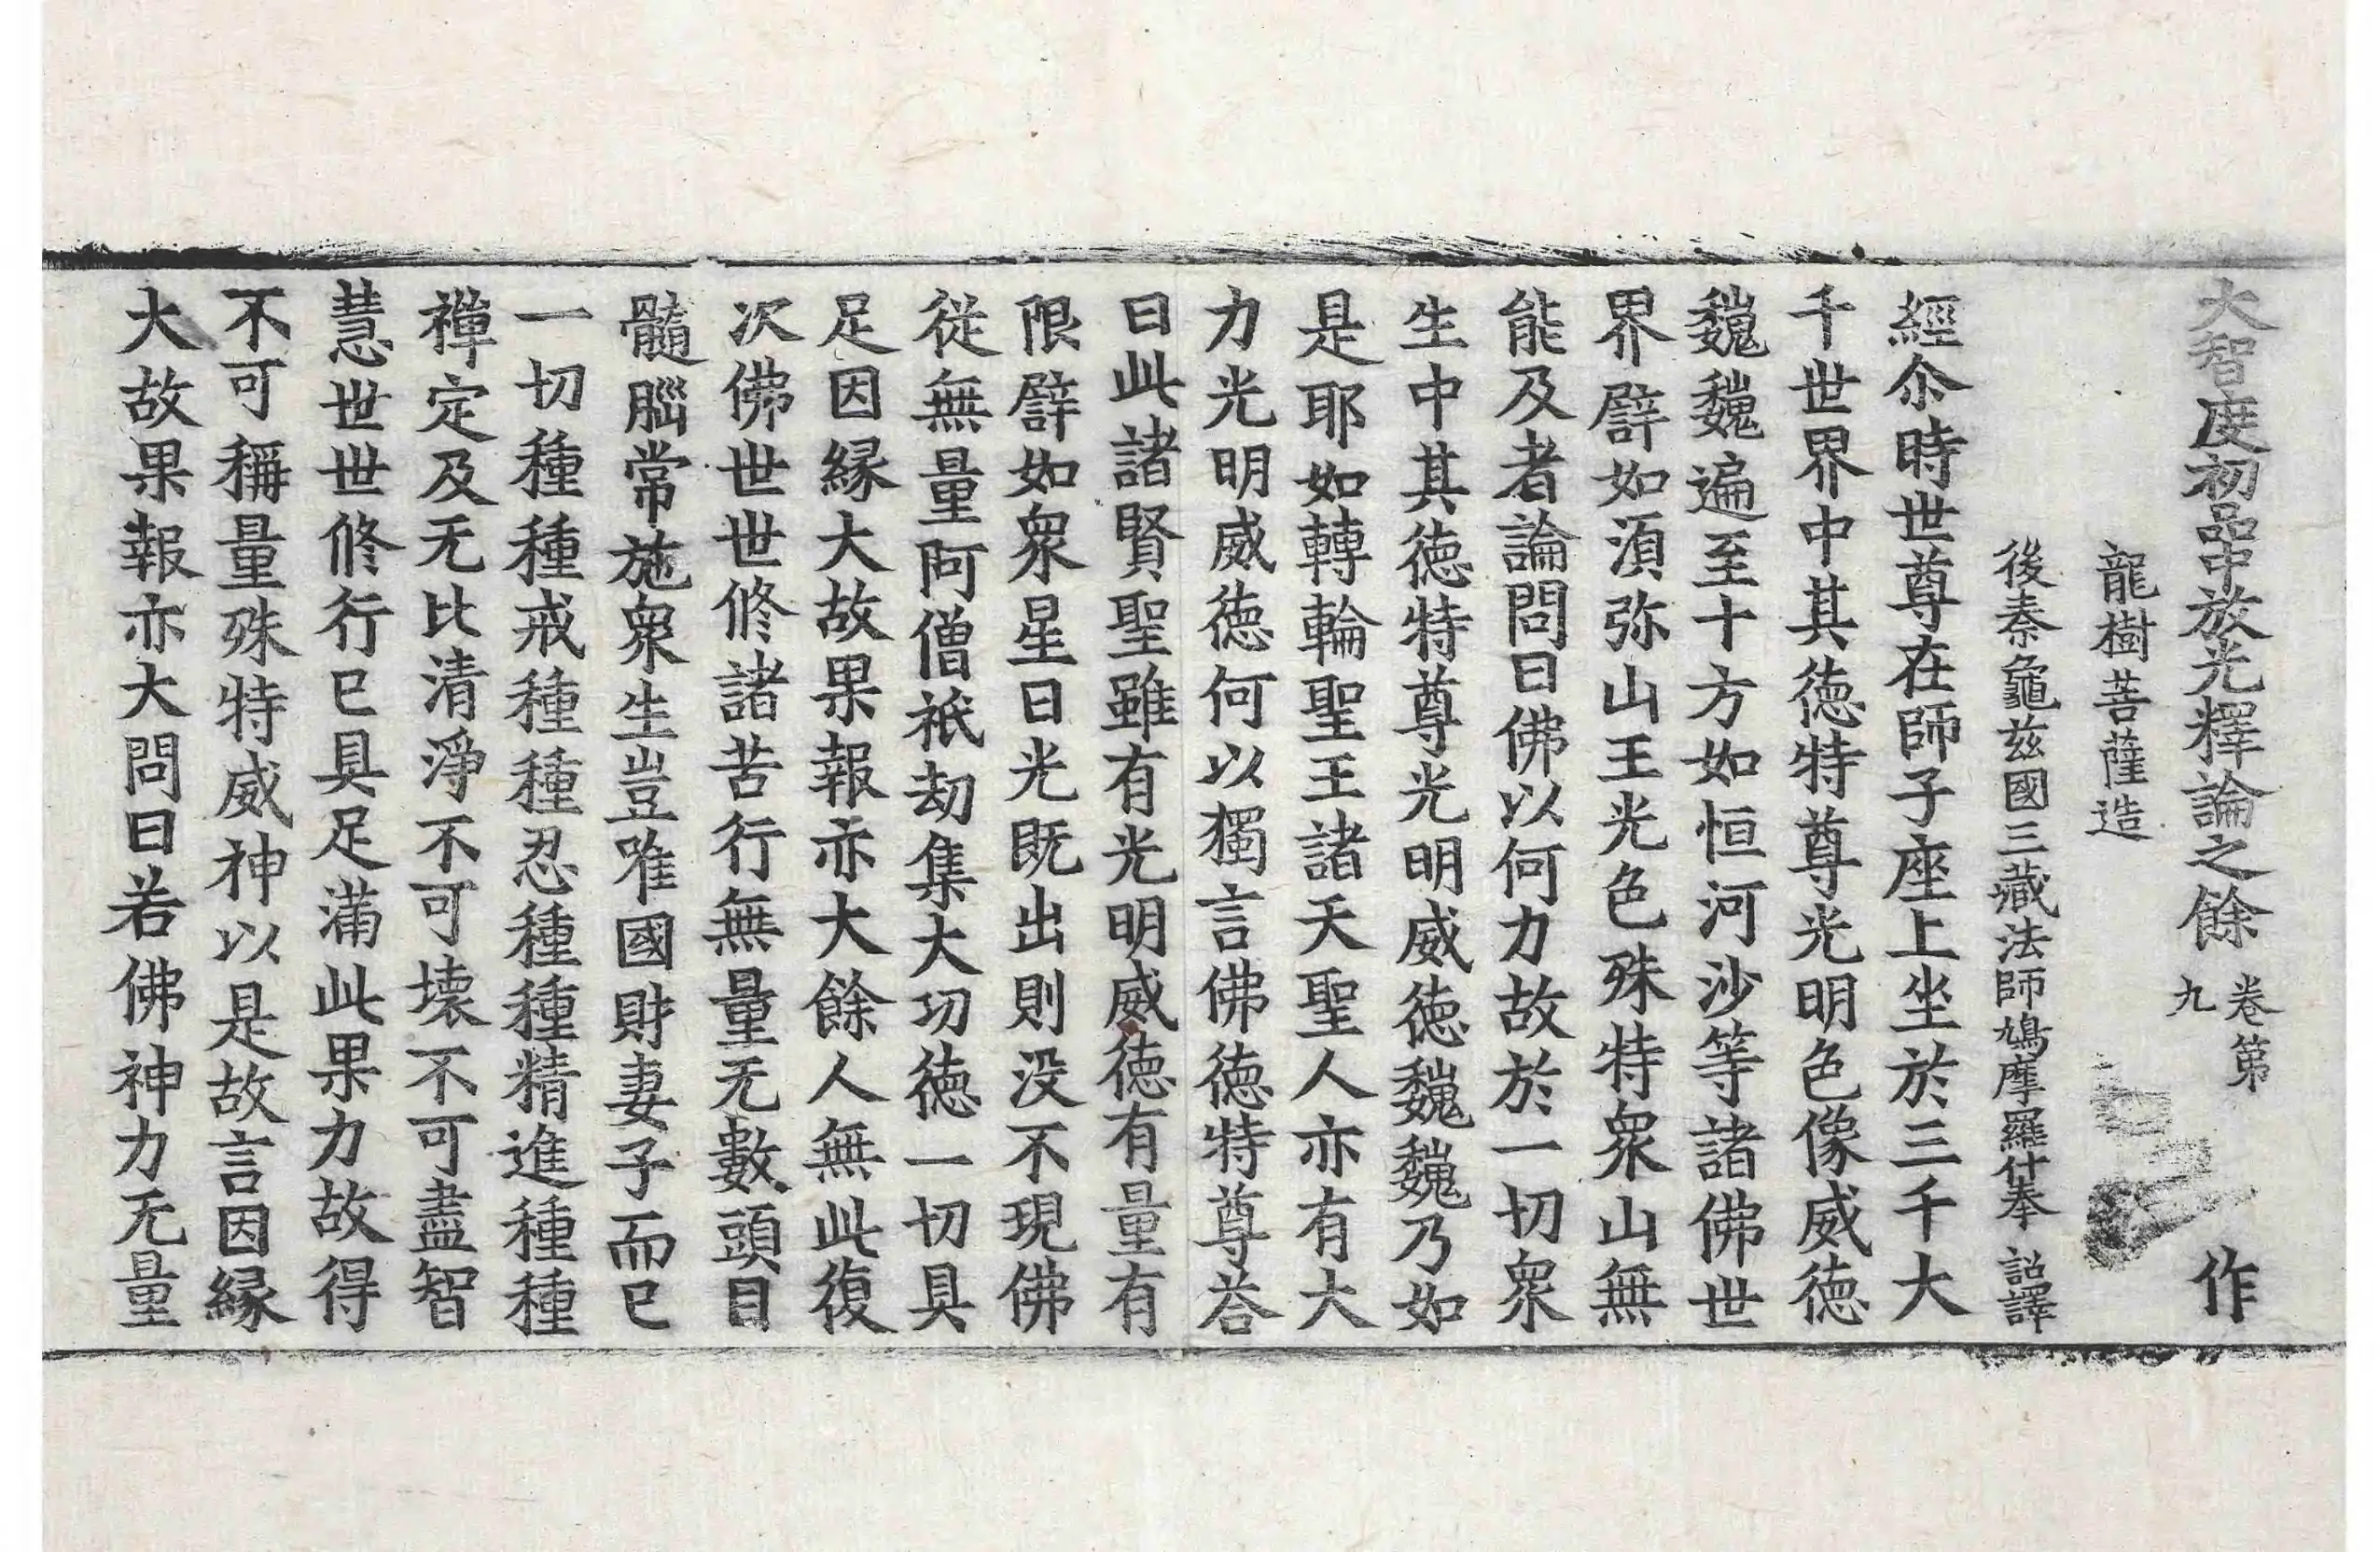 大智度初品中放光釋論之餘 卷第九 作
龍樹菩薩造
後秦龜茲國三藏法師鳩摩羅什奉 詔譯
經尒時世尊在師子座上坐於三千大
千世界中其德特尊光明色像威德
巍巍遍至十方如恒河沙等諸佛世
界譬如湏弥山王光色殊特衆山無
能及者論問曰佛以何力故於一切衆
生中其德特尊光明威德巍巍乃如
是耶如轉輪聖王諸天聖人亦有大
力光明威德何以獨言佛德特尊荅
曰此諸賢聖雖有光明威德有量有
限譬如衆星日光既出則没不現佛
從無量阿僧祇劫集大功德一切具
足因緣大故果報亦大餘人無此復
次佛世世修諸苦行無量无數頭目
髓腦常施衆生豈唯國財妻子而已
一切種種戒種種忍種種精進種種
禪定及无比清淨不可壞不可盡智
慧世世修行已具足滿此果力故得
不可稱量殊特威神以是故言因緣
大故果報亦大問曰若佛神力无量